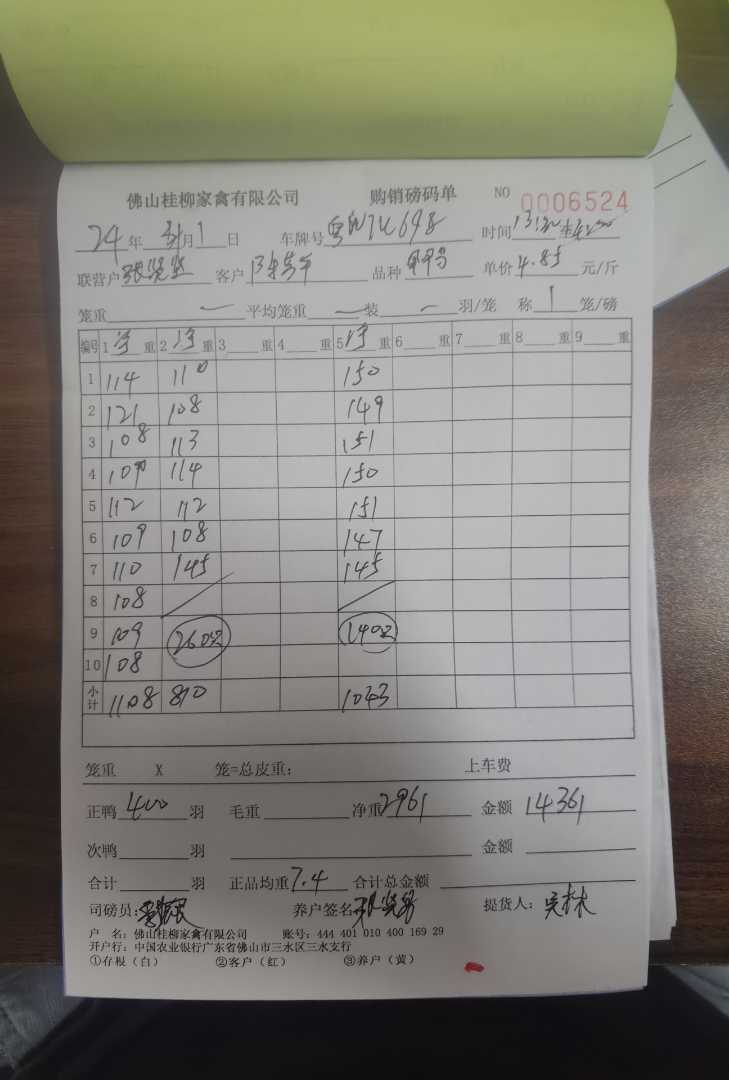 佛山桂柳家禽有限公司 购销磅码单 NO 0006524
24年 3月1日 车牌号 时间
联营户 客户 品种 单价4.85元/斤
笼重 — 平均笼重 — 装 — 羽/笼 称 1 笼/磅
编号 1 净 重 2 净 重 3 重 4 重 5 净 重 6 重 7 重 8 重 9 重
1 114 110 150
2 121 108 149
3 108 113 151
4 109 114 150
5 112 112 151
6 109 108 147
7 110 145 145
8 108
9 109 260只 140只
10 108
小计 1108 810 1043
笼重 X 笼=总皮重: 上车费
正鸭 400 羽 毛重 净重 2961 金额 14361
次鸭 羽 金额
合计 羽 正品均重 7.4 合计总金额
司磅员: 养户签名 提货人:
户 名: 佛山桂柳家禽有限公司 账号: 444 401 010 400 169 29
开户行: 中国农业银行广东省佛山市三水区三水支行
①存根(白) ②客户(红) ③养户(黄)